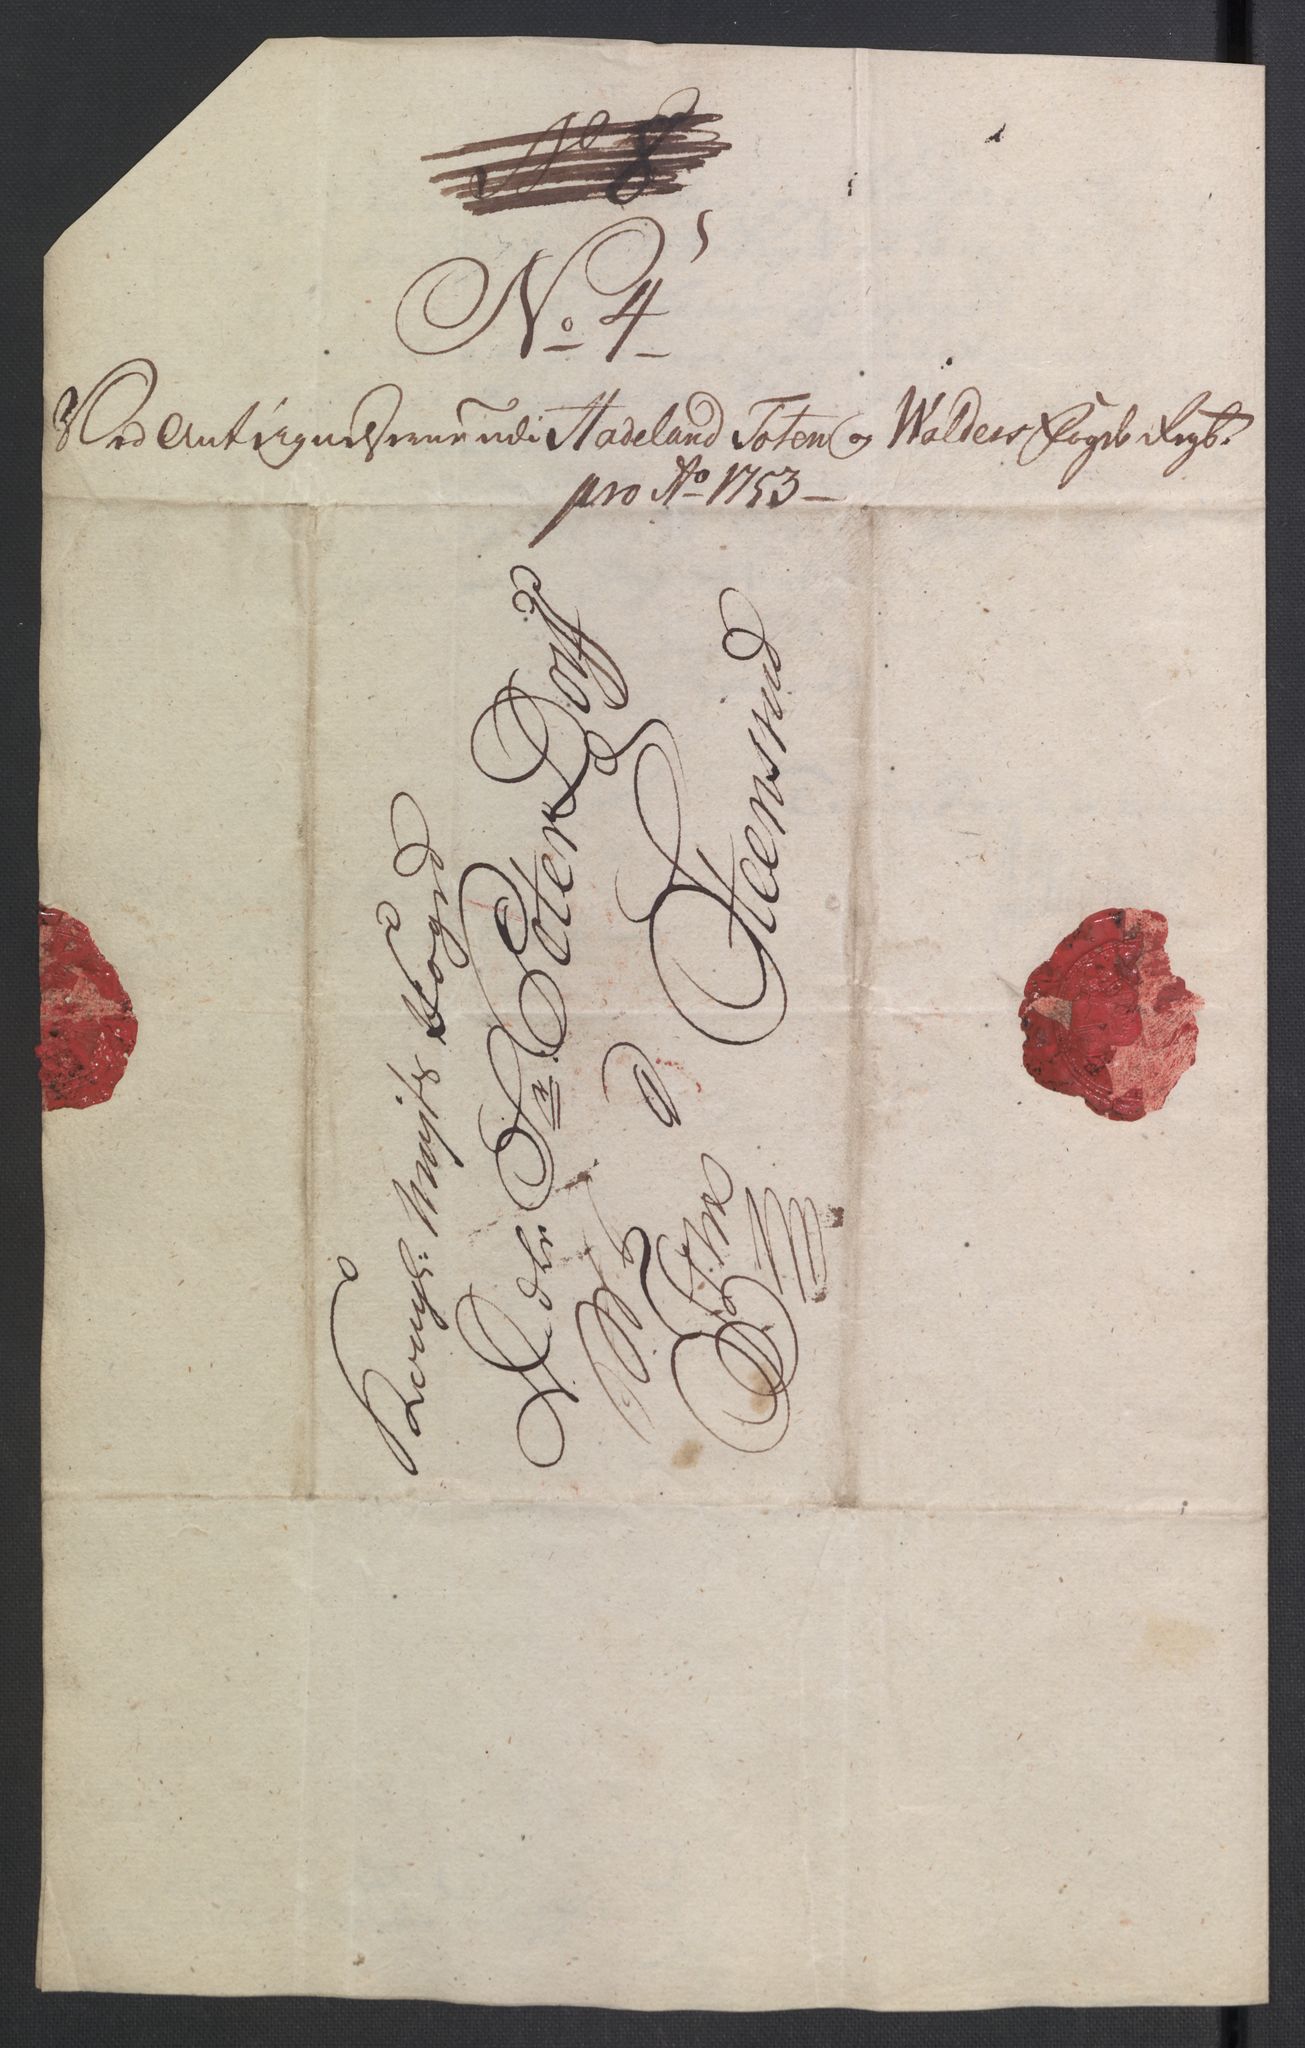 No 8
No 4
Ved Antegnelserne udi Hadeland Toten og Walders Fogd: Regb:
pro Ao 1753
Kongl: Mayts Foged
Edle Sr. Peter Dorff
a Steensrud